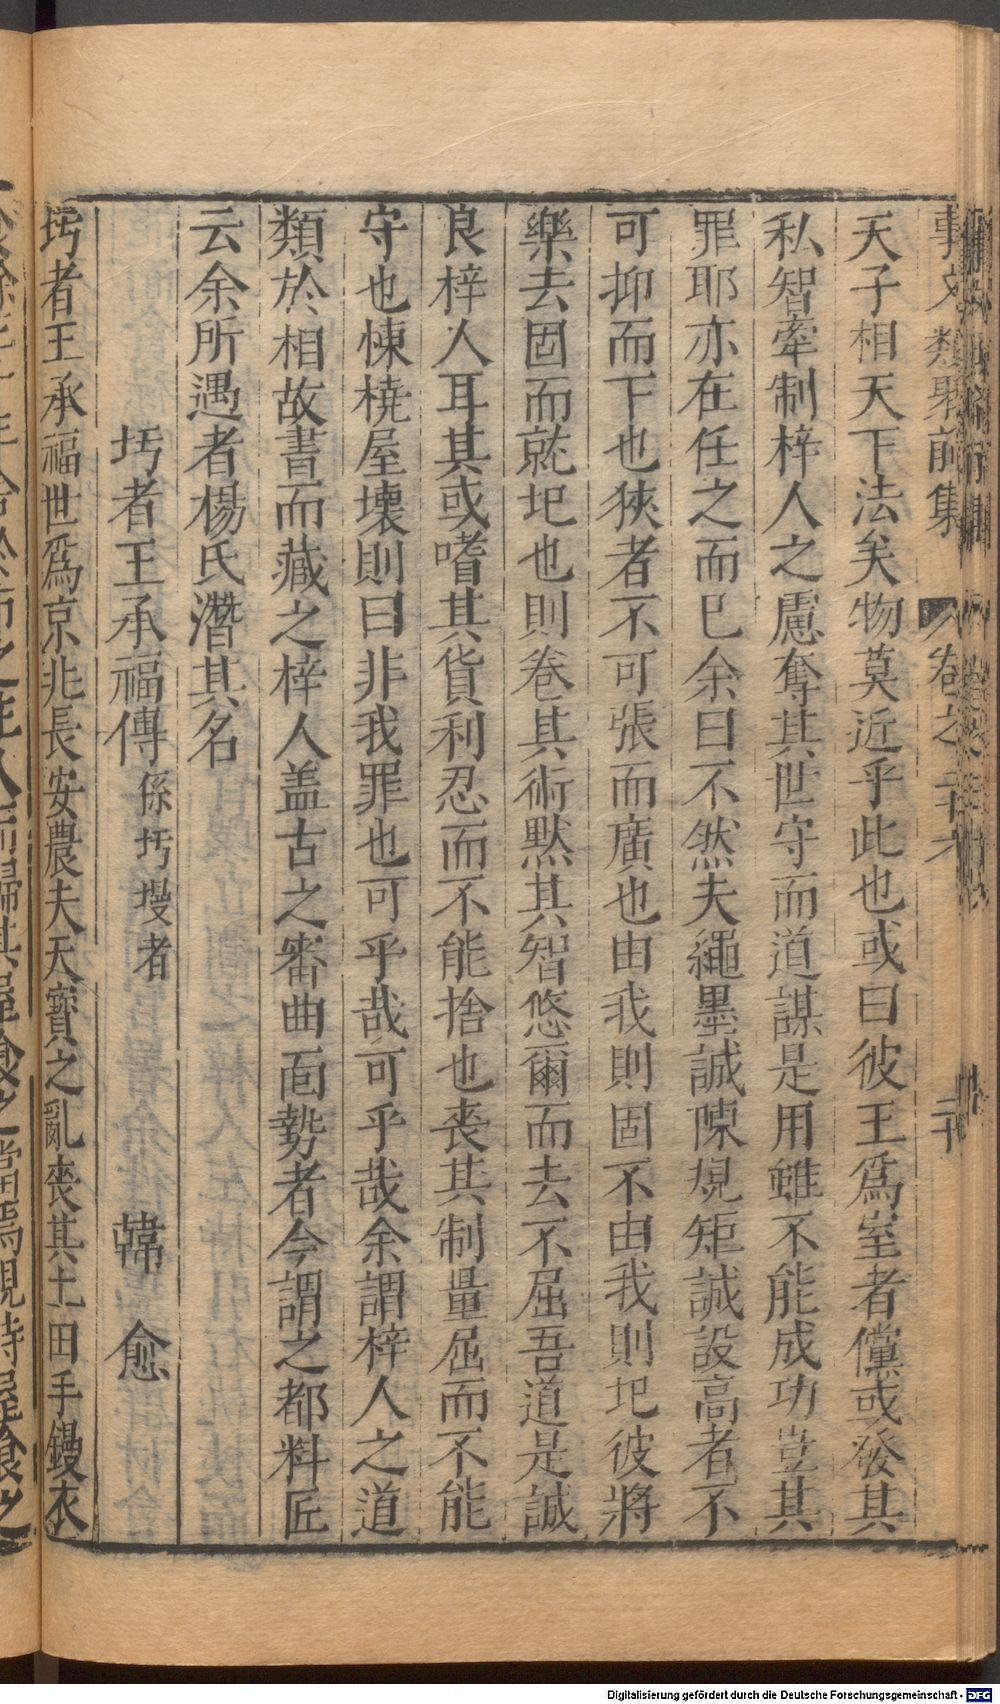 事文類聚前集 卷之三十八 二十
天子相天下法矣物莫近乎此也或曰彼王爲室者儻或發其
私智牽制梓人之慮奪其世守而道謀是用雖不能成功豈其
罪耶亦在任之而已余曰不然夫繩墨誠陳規矩誠設高者不
可抑而下也狹者不可張而廣也由我則固不由我則圯彼將
樂去固而就圯也則卷其術默其智悠爾而去不屈吾道是誠
良梓人耳其或嗜其貨利忍而不能捨也喪其制量屈而不能
守也棟橈屋壞則曰非我罪也可乎哉可乎哉余謂梓人之道
類於相故書而藏之梓人盖古之審曲面勢者今謂之都料匠
云余所遇者楊氏潛其名
圬者王承福傳 係圬墁者 韓愈
圬者王承福世爲京兆長安農夫天寶之亂喪其土田手鏝衣
Digitalisierung gefördert durch die Deutsche Forschungsgemeinschaft - DFG